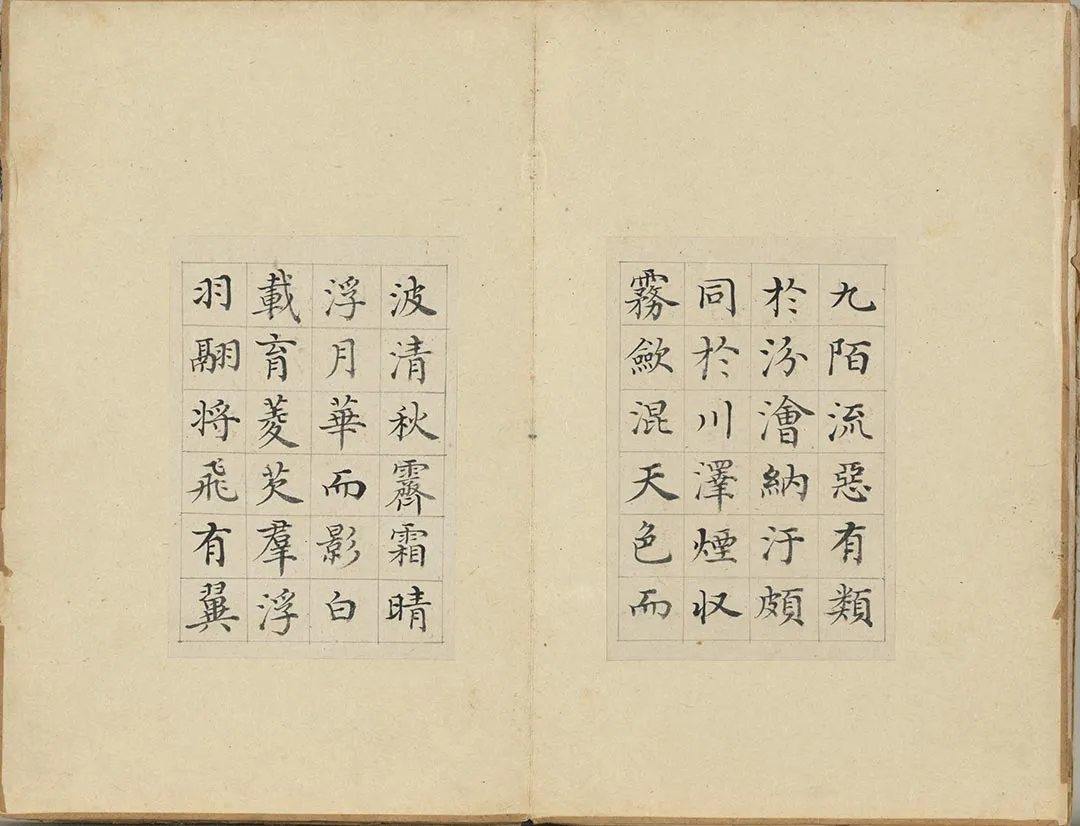 九陌流惡有類
於汾澮納汙頗
同於川澤煙収
霧歛混天色而
波清秋霽霜晴
浮月華而影白
載育菱芡羣浮
羽翮将飛有翼